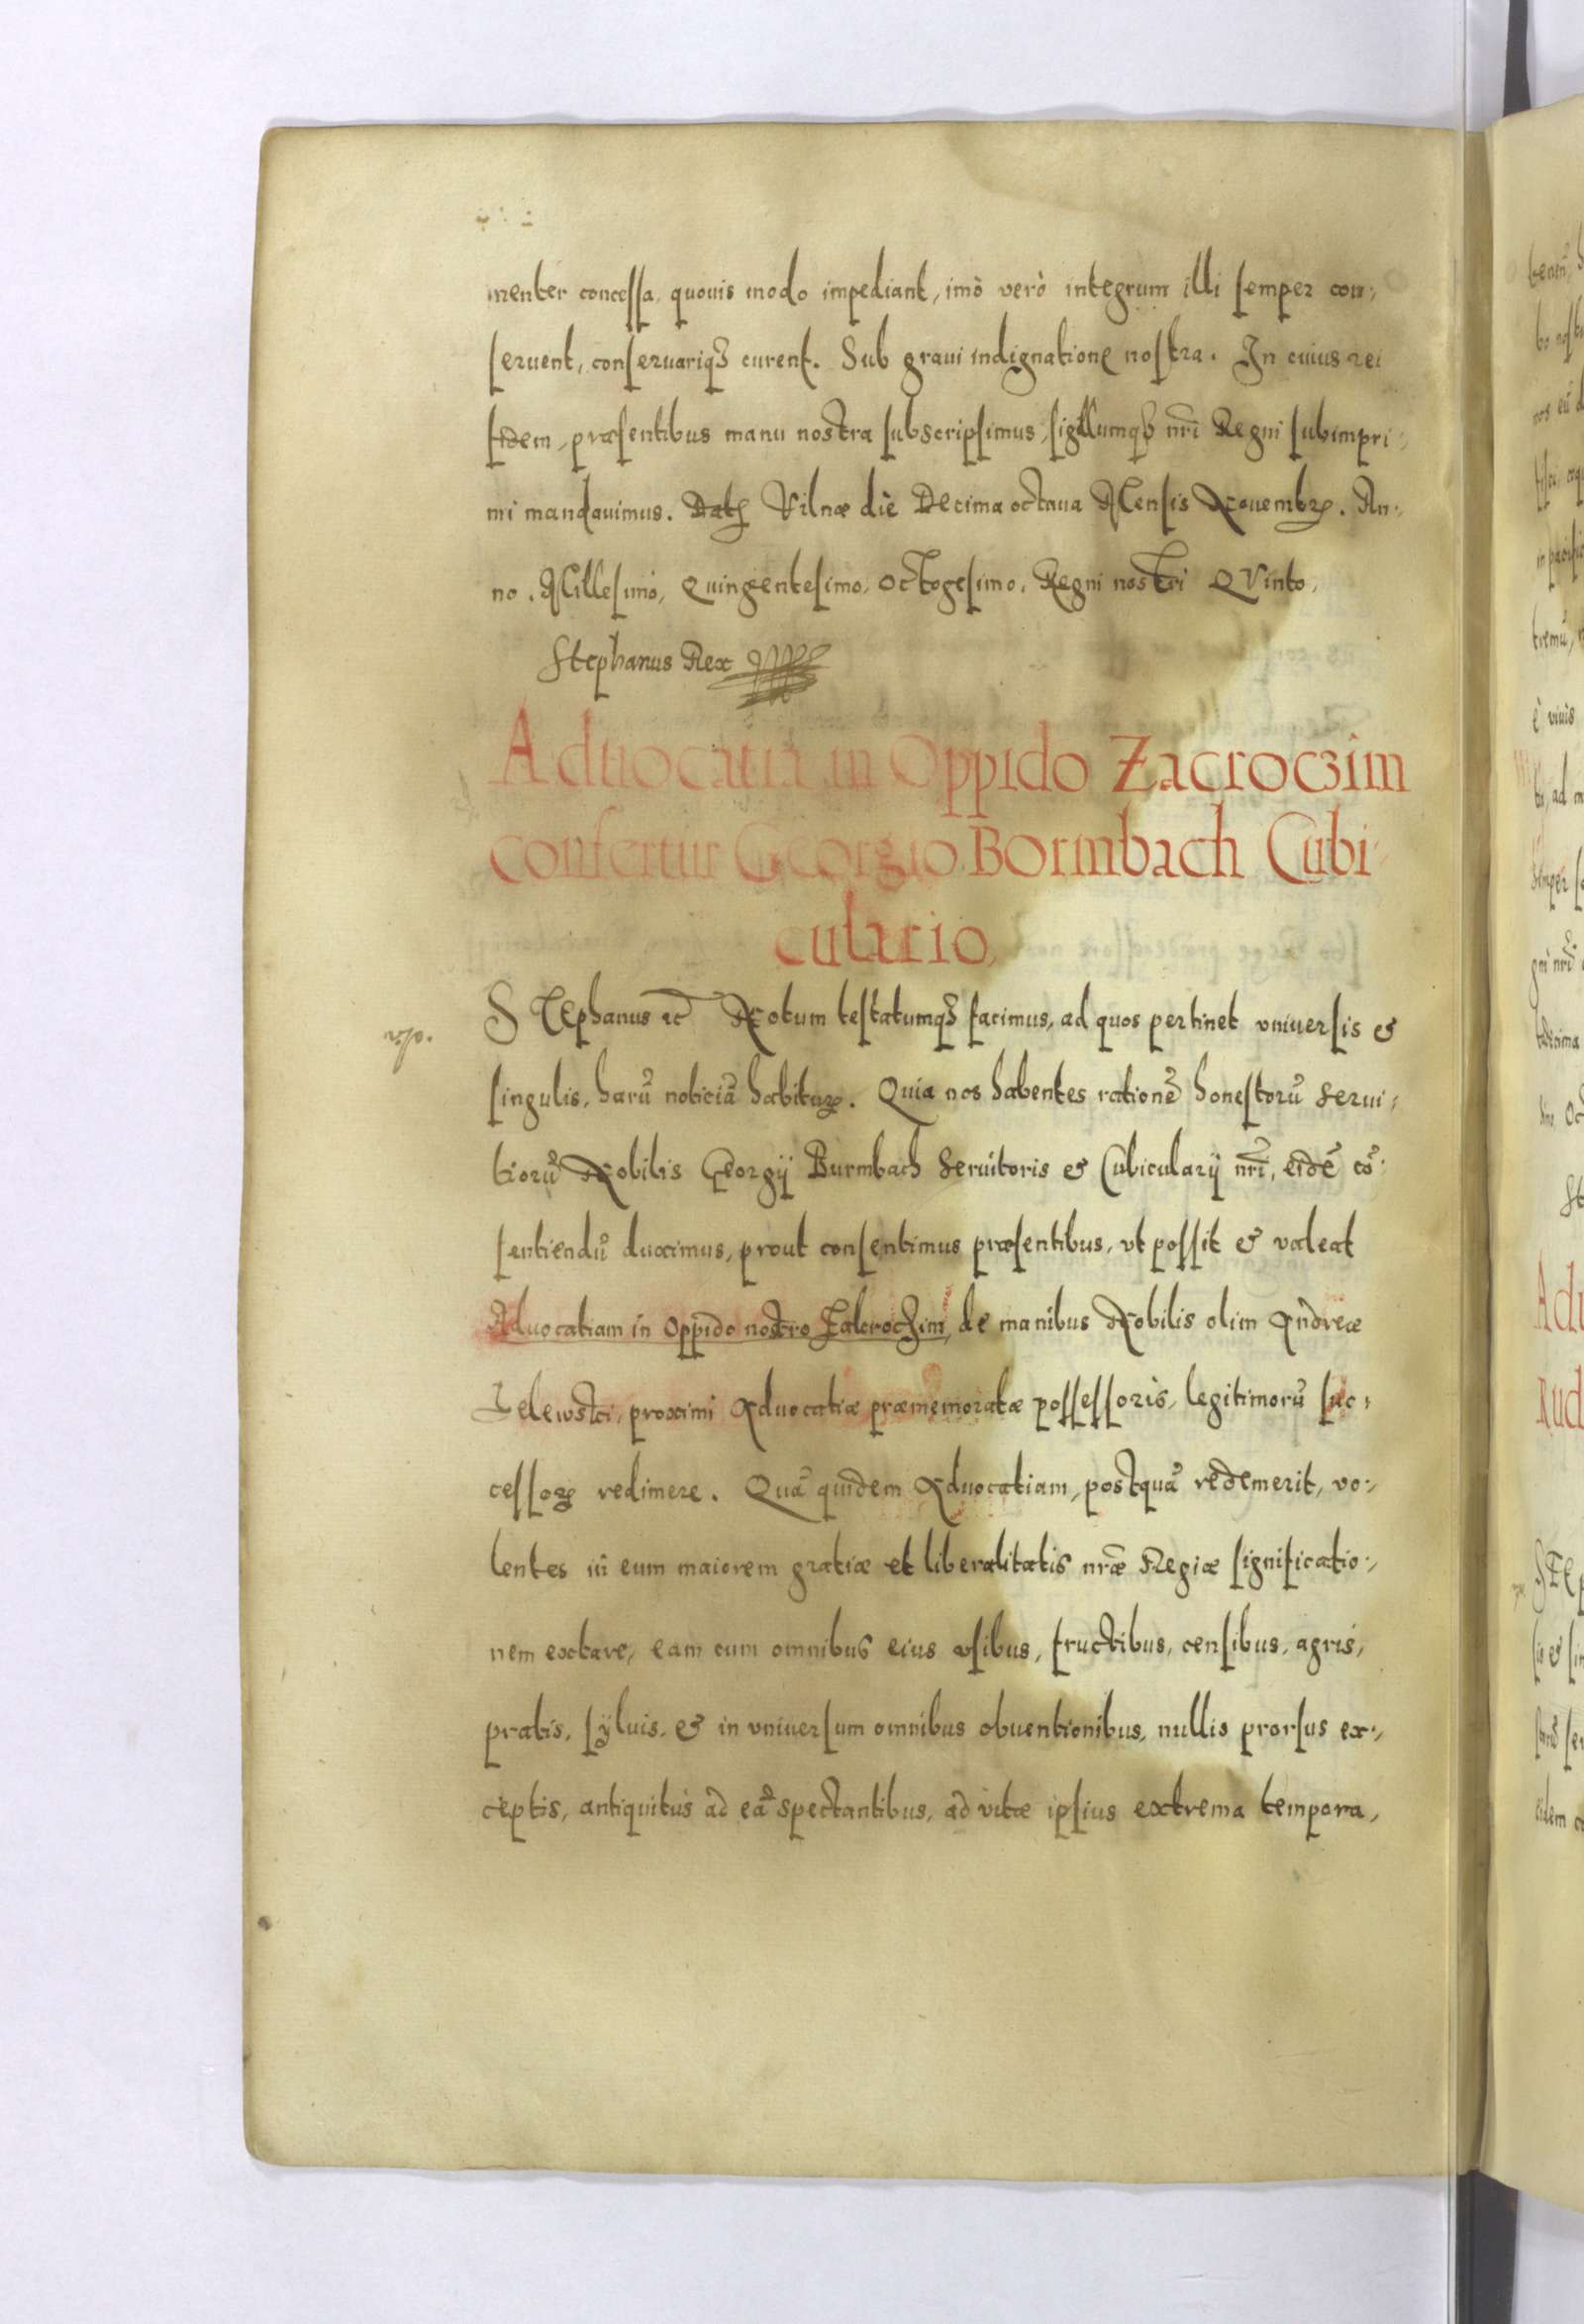 menter concessa, quouis modo impediant, imò verò integrum illi semper con-
seruent, conseruariq3 curent. Sub graui indignatione nostra. In cuius rei
fidem, præsentibus manu nostra subscripsimus, sigillumq3 nr̃i Regni subimpri-
mi mandauimus. Datꝭ Vilnæ die Decima octaua Mensis Nouembrꝭ. An-
no. Millesimo, Quingentesimo, Octogesimo, Regni nostri QVinto,
Stephanus Rex
Aduocatia in Oppido Zacroczim
confertur Georgio Bormbach Cubi-
culario,
STEphanus ꝛc Notum testatumq3 facimus, ad quos pertinet vniuersis &
singulis, harũ noticiã habiturꝭ. Quia nos habentes rationẽ honestorũ serui-
tiorũ Nobilis Georgij Burmbach Seruitoris & Cubicularij nr̃i, eidẽ cõ-
sentiendũ duximus, prout consentimus præsentibus, vt possit & valeat
Aduocatiam in Oppido nostro Zakroczim, de manibus Nobilis olim Andreæ
proximi Aduocatiæ præmemoratæ possessoris, legitimorũ suc-
cessorꝭ redimere. Quã quidem Aduocatiam, postquã redemerit, vo-
lentes in eum maiorem gratiæ et liberalitatis nr̃æ Regiæ significatio-
nem extare, eam cum omnibus eius vsibus, fructibus, censibus, agris,
pratis, syluis, & in vniuersum omnibus obuentionibus, nullis prorsus ex-
ceptis, antiquitus ad eã spectantibus, ad vitæ ipsius extrema tempora,